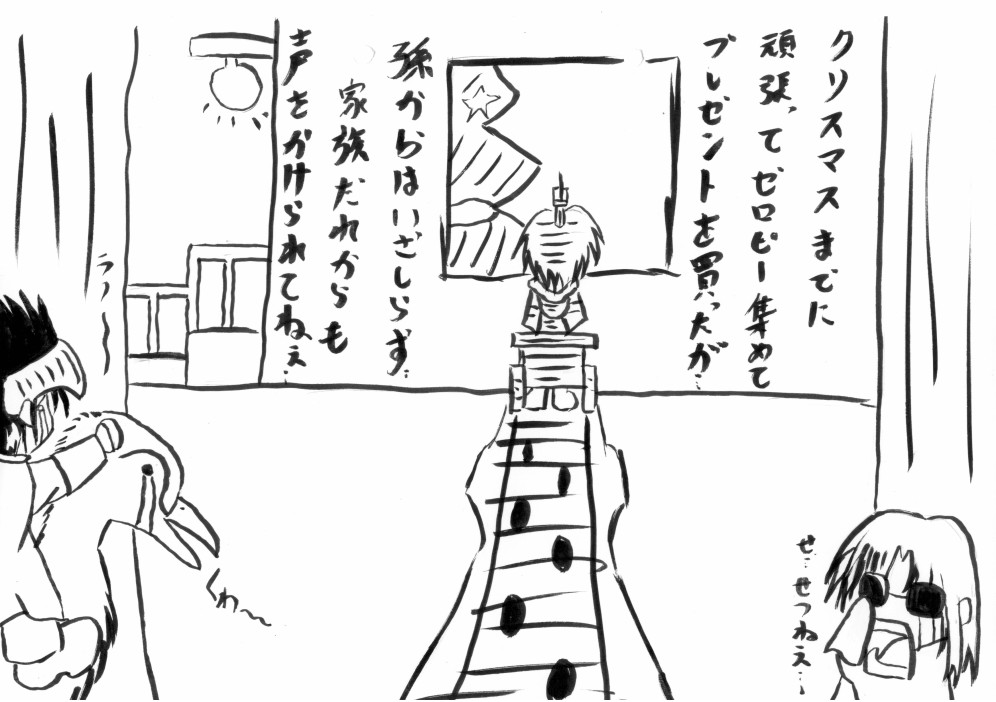 クリスマスまでに
頑張ってゼロピー集めて
プレゼントを買ったが…
孫からはいざしらず…
家族だれからも
声をかけられてねぇ…
うつ〜
くわ〜
せ…せつねえ…!